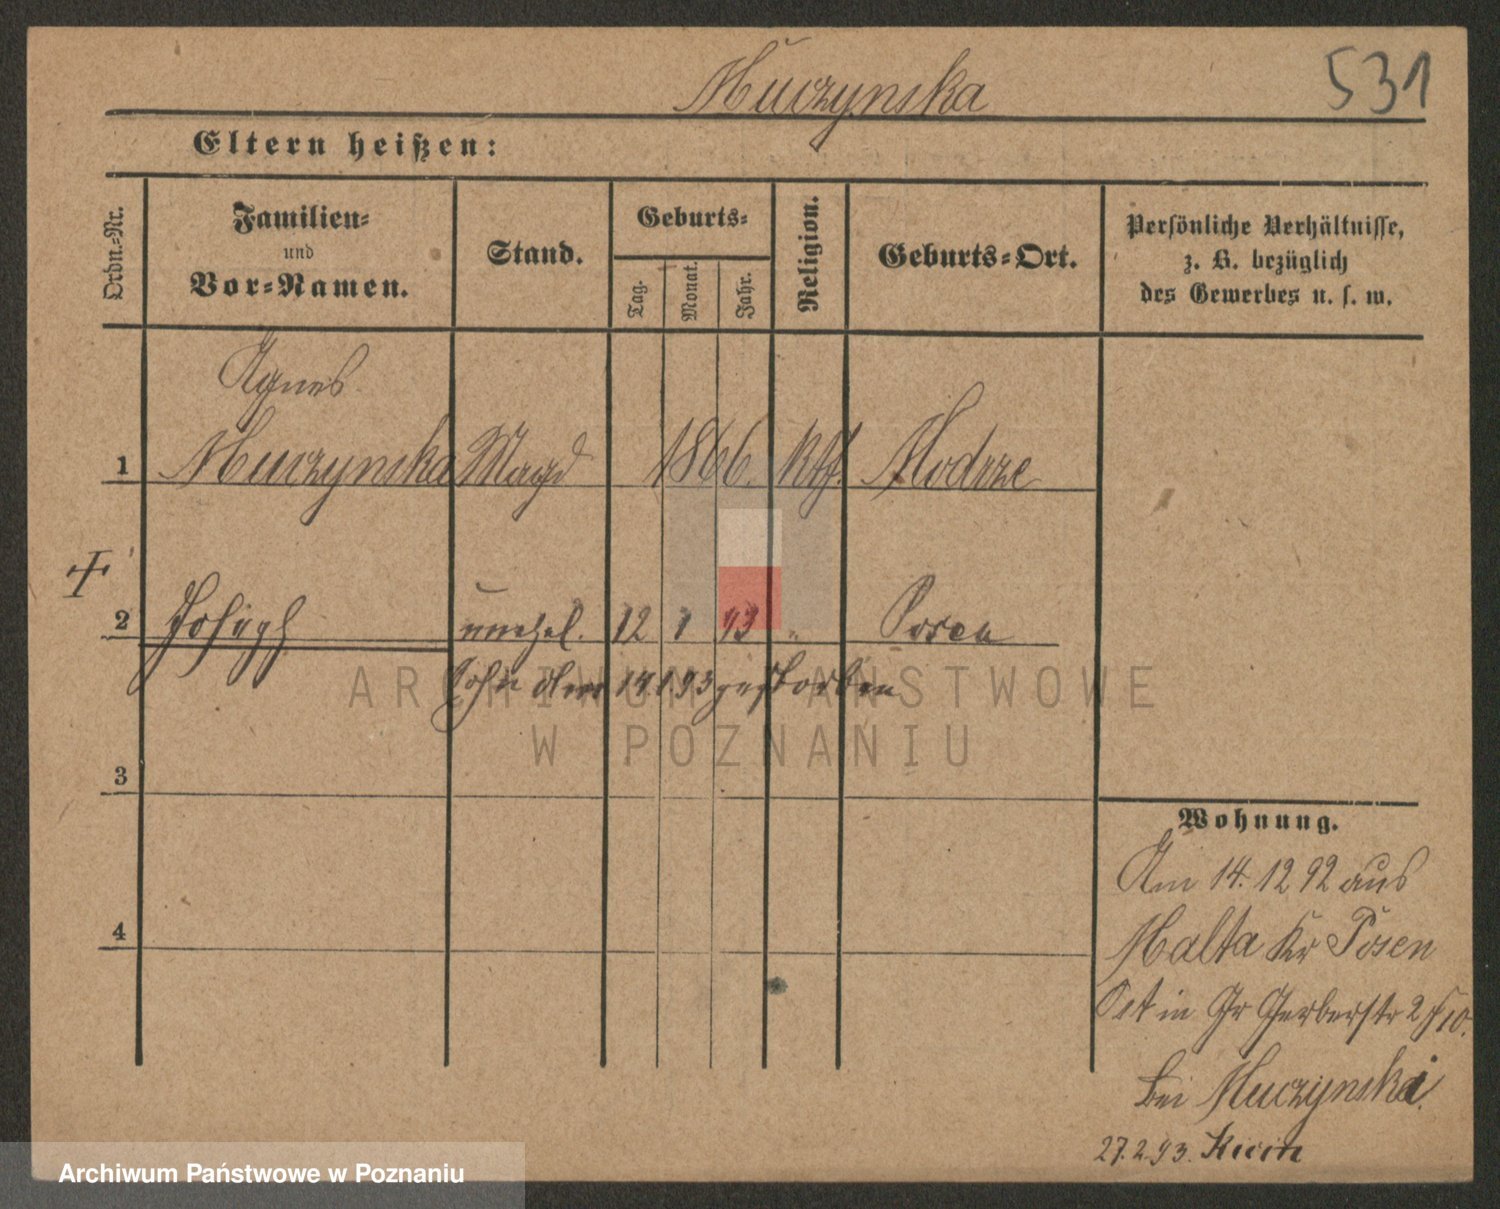 Muczynska
531
Eltern heißen:
Ordn.-Nr.
Familien-
und
Vor-Namen.
Stand.
Geburts-
Tag.
Monat.
Jahr.
Religion.
Geburts-Ort.
Persönliche Verhältnisse,
z. B. bezüglich
des Gewerbes u. s. w.
Agnes
1 Muczynska Magd 1866. kth. Modrze
2 Joseph unehel. 12 1 93 " Posen
Sohn der 14 1.93 gestorben
3
4
Wohnung.
Am 14. 12 92 aus
Malta Kr Posen
in Gr Gerberstr
bei Muczynski.
27.2.93.
ARCHIWUM PAŃSTWOWE
W POZNANIU
Archiwum Państwowe w Poznaniu